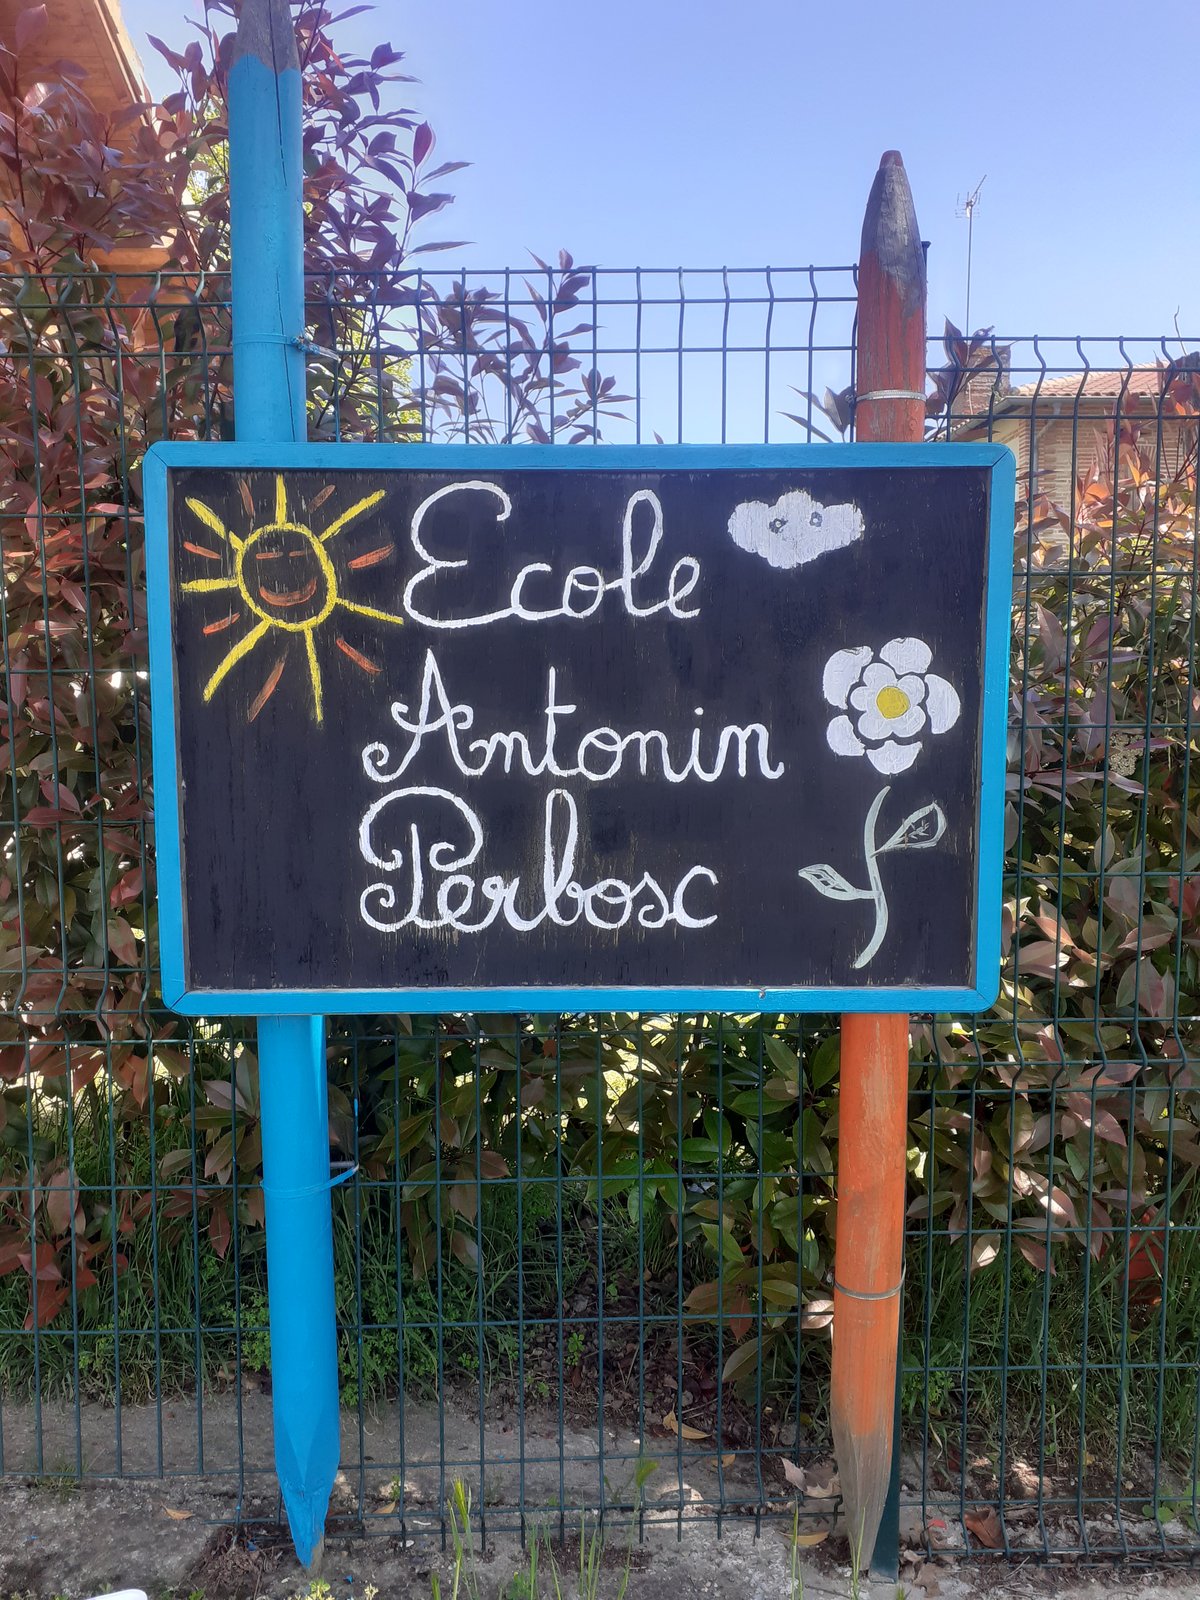 Ecole
Antonin
Perbosc